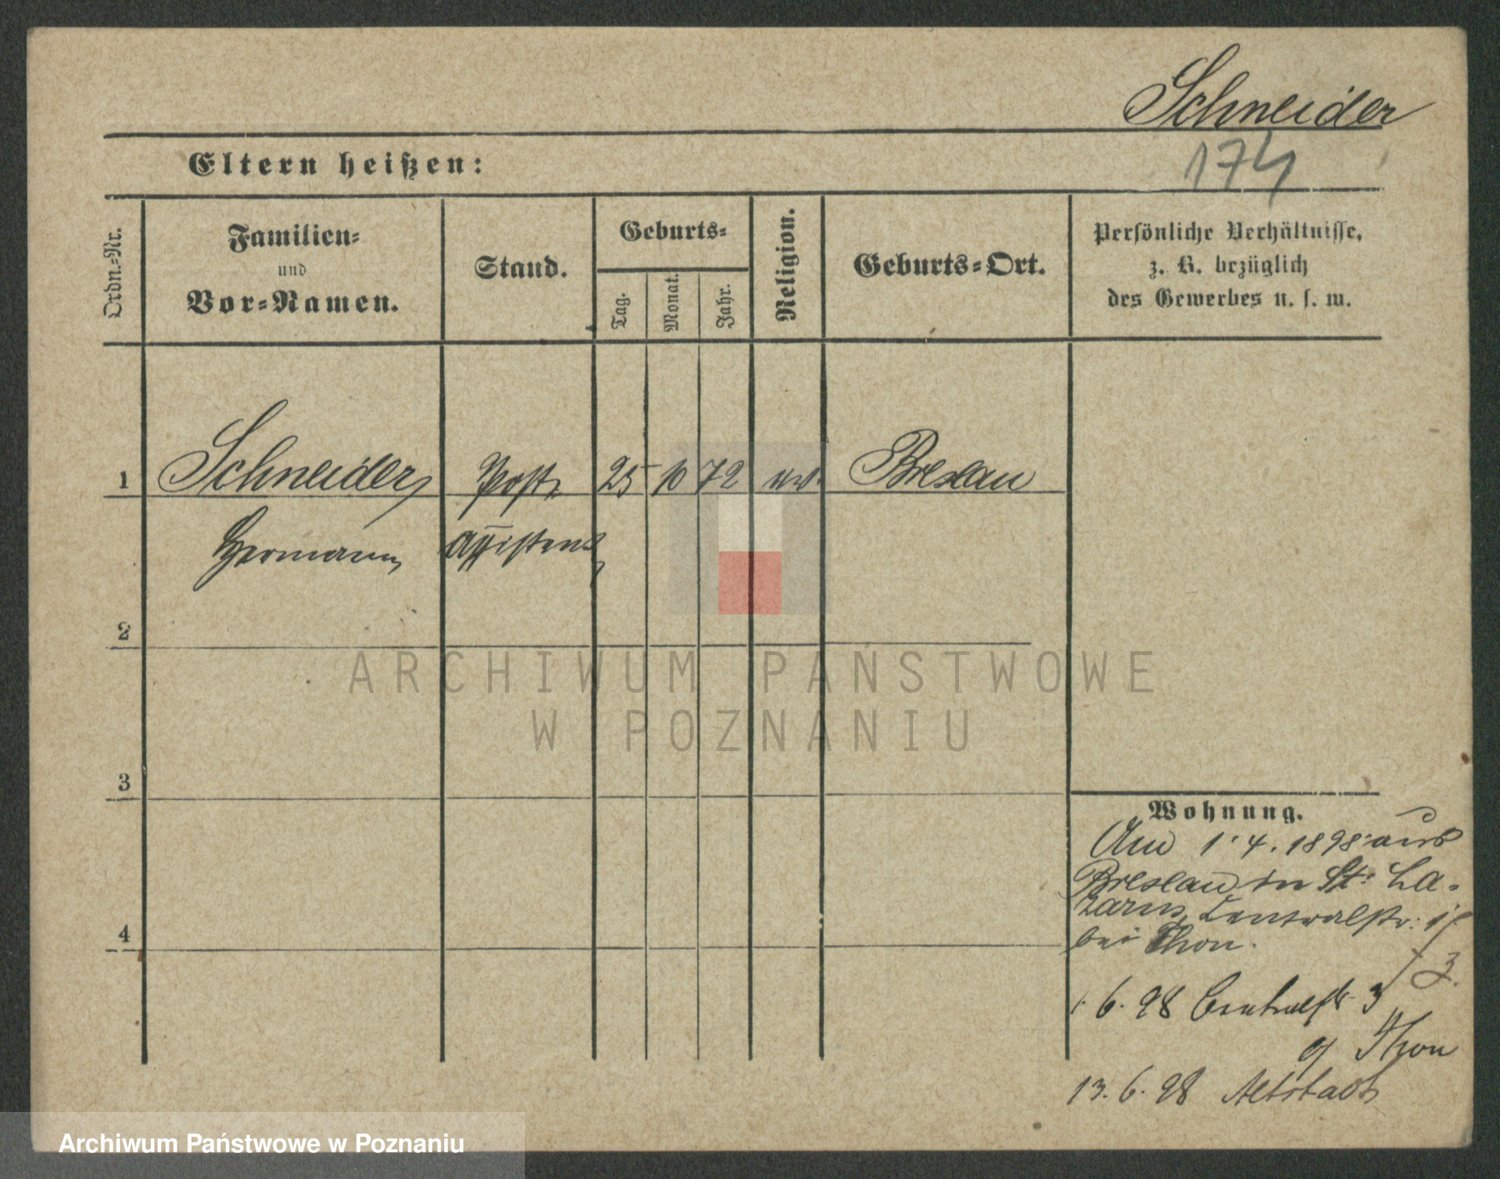 Schneider
174
Eltern heißen:
Ordn.-Nr.
Familien-
und
Vor-Namen.
Stand.
Geburts-
Tag.
Monat.
Jahr.
Religion.
Geburts-Ort.
Persönliche Verhältnisse,
z. B. bezüglich
des Gewerbes u. s. w.
1 Schneider, Post- 25 10 72 ev. Breslau
Hermann, assistent
2
3
4
Wohnung.
Am 1.4.1898 aus
Breslau in St. La-
zarus, Centralstr.
bei Thon.
3.
1.6.98 Centralstr. 3
Thon
13.6.98 Altstadt
ARCHIWUM PAŃSTWOWE
W POZNANIU
Archiwum Państwowe w Poznaniu